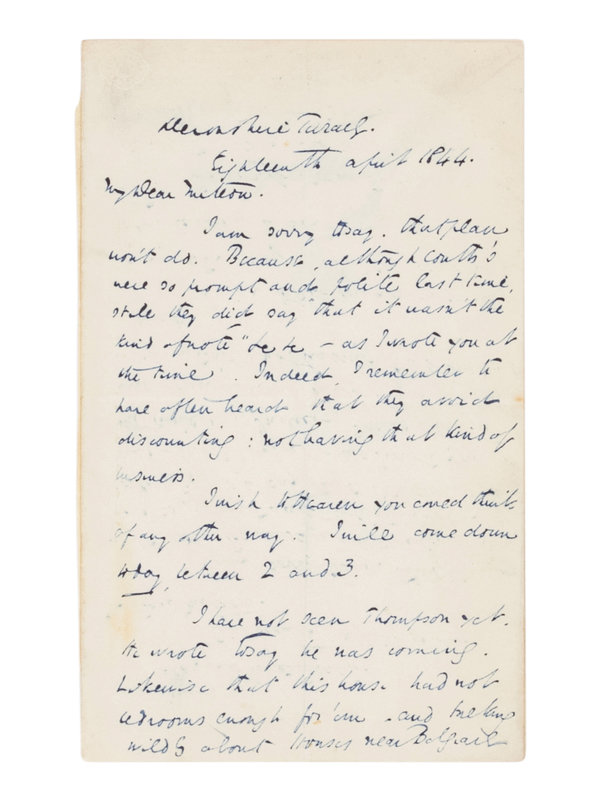 Devonshire Terrace.
Eighteenth April 1844.
My Dear Mitton.
I am sorry to say, that plan
won't do. Because, although Coutts's
were so prompt and polite last time,
still they did say "that it wasn't the
kind of note" &c &c – as I wrote you at
the time. Indeed, I remember to
have often heard that they avoid
discounting: not having that kind of
business.
I wish to Heaven you could think
of any other way. I will come down
today, between 2 and 3.
I have not seen Thompson yet.
He wrote to say he was coming.
Likewise that this house had not
bedrooms enough for 'em – and talking
wildly about Houses near Belgrave